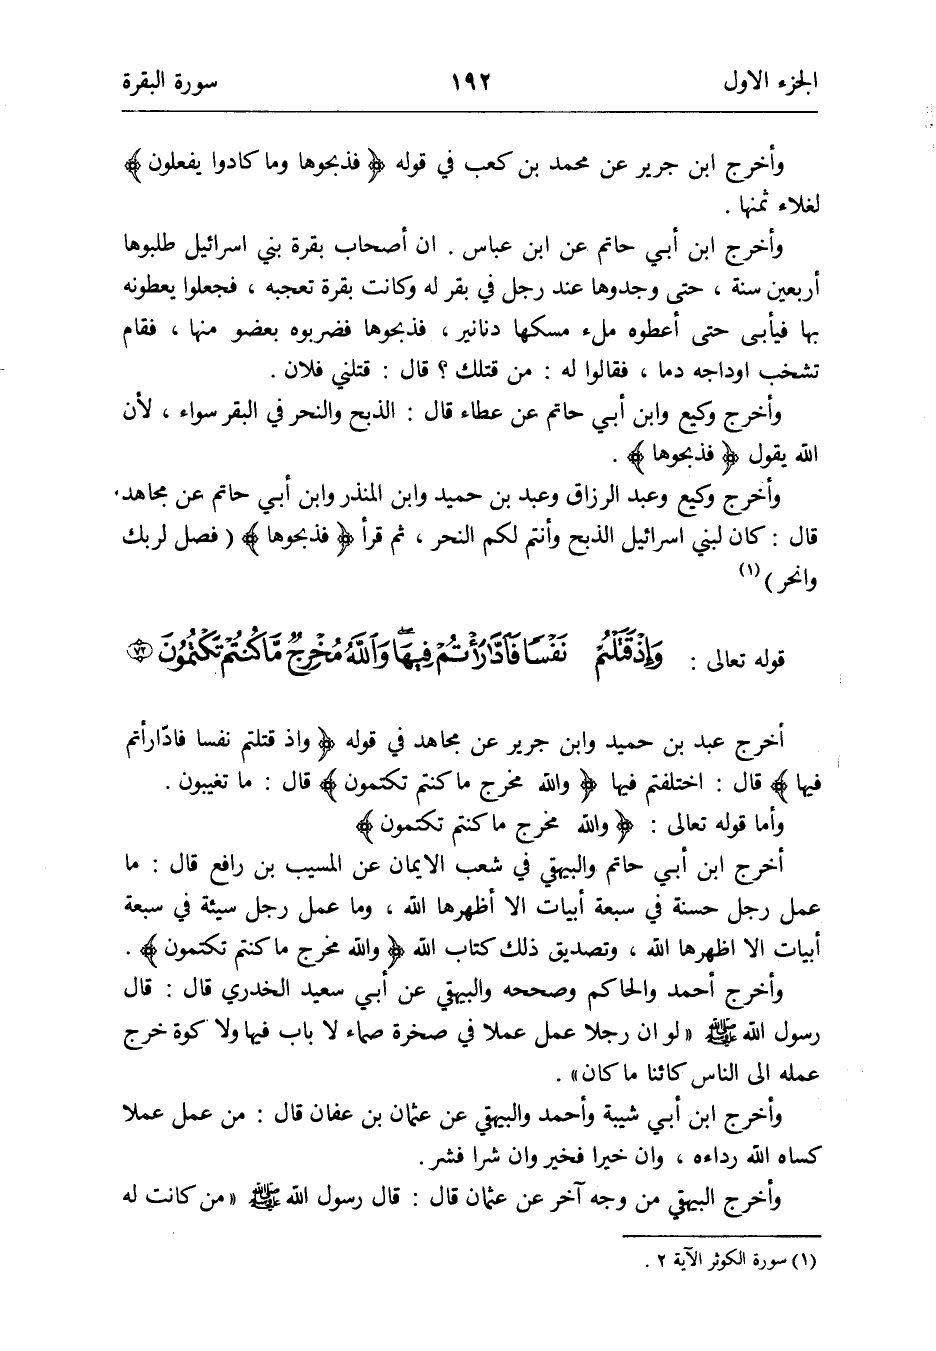 الجزء الاول ١٩٢ سورة البقرة
وأخرج ابن جرير عن محمد بن كعب في قوله ﴿ فذبحوها وما كادوا يفعلون ﴾
لغلاء ثمنها .
وأخرج ابن أبي حاتم عن ابن عباس . ان أصحاب بقرة بني اسرائيل طلبوها
أربعين سنة ، حتى وجدوها عند رجل في بقر له وكانت بقرة تعجبه ، فجعلوا يعطونه
بها فيأبى حتى أعطوه ملء مسكها دنانير ، فذبحوها فضربوه بعضو منها ، فقام
تشخب اوداجه دما ، فقالوا له : من قتلك ؟ قال : قتلني فلان .
وأخرج وكيع وابن أبي حاتم عن عطاء قال : الذبح والنحر في البقر سواء ، لأن
الله يقول ﴿ فذبحوها ﴾ .
وأخرج وكيع وعبد الرزاق وعبد بن حميد وابن المنذر وابن أبي حاتم عن مجاهد،
قال : كان لبني اسرائيل الذبح وأنتم لكم النحر ، ثم قرأ ﴿ فذبحوها ﴾ ( فصل لربك
وانحر ) (١)
قوله تعالى : وَإِذْ قَتَلْتُمْ نَفْسًا فَادَّارَأْتُمْ فِيهَا ۖ وَاللَّهُ مُخْرِجٌ مَّا كُنتُمْ تَكْتُمُونَ ۝٧٢
أخرج عبد بن حميد وابن جرير عن مجاهد في قوله ﴿ واذ قتلتم نفسا فادّارأتم
فيها ﴾ قال : اختلفتم فيها ﴿ والله مخرج ما كنتم تكتمون ﴾ قال : ما تغيبون .
وأما قوله تعالى : ﴿ والله مخرج ما كنتم تكتمون ﴾
أخرج ابن أبي حاتم والبيهقي في شعب الايمان عن المسيب بن رافع قال : ما
عمل رجل حسنة في سبعة أبيات الا أظهرها الله ، وما عمل رجل سيئة في سبعة
أبيات الا اظهرها الله ، وتصديق ذلك كتاب الله ﴿ والله مخرج ما كنتم تكتمون ﴾ .
وأخرج أحمد والحاكم وصححه والبيهقي عن أبي سعيد الخدري قال : قال
رسول الله ﷺ « لو ان رجلا عمل عملا في صخرة صماء لا باب فيها ولا كوة خرج
عمله الى الناس كائنا ما كان » .
وأخرج ابن أبي شيبة وأحمد والبيهقي عن عثمان بن عفان قال : من عمل عملا
كساه الله رداءه ، وان خيرا فخير وان شرا فشر .
وأخرج البيهقي من وجه آخر عن عثمان قال : قال رسول الله ﷺ « من كانت له
(١) سورة الكوثر الآية ٢ .